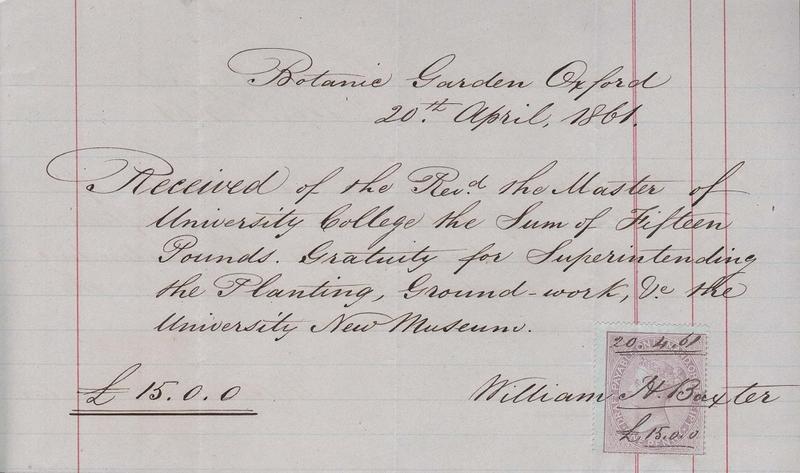 Botanic Garden Oxford
20th. April, 1861.
Received of the Revd. the Master of
University College the Sum of Fifteen
Pounds. Gratuity for Superintending
the Planting, Ground-work, &c. the
University New Museum.
20.4.61
£ 15.0.0
William H. Baxter
£ 15.0.0